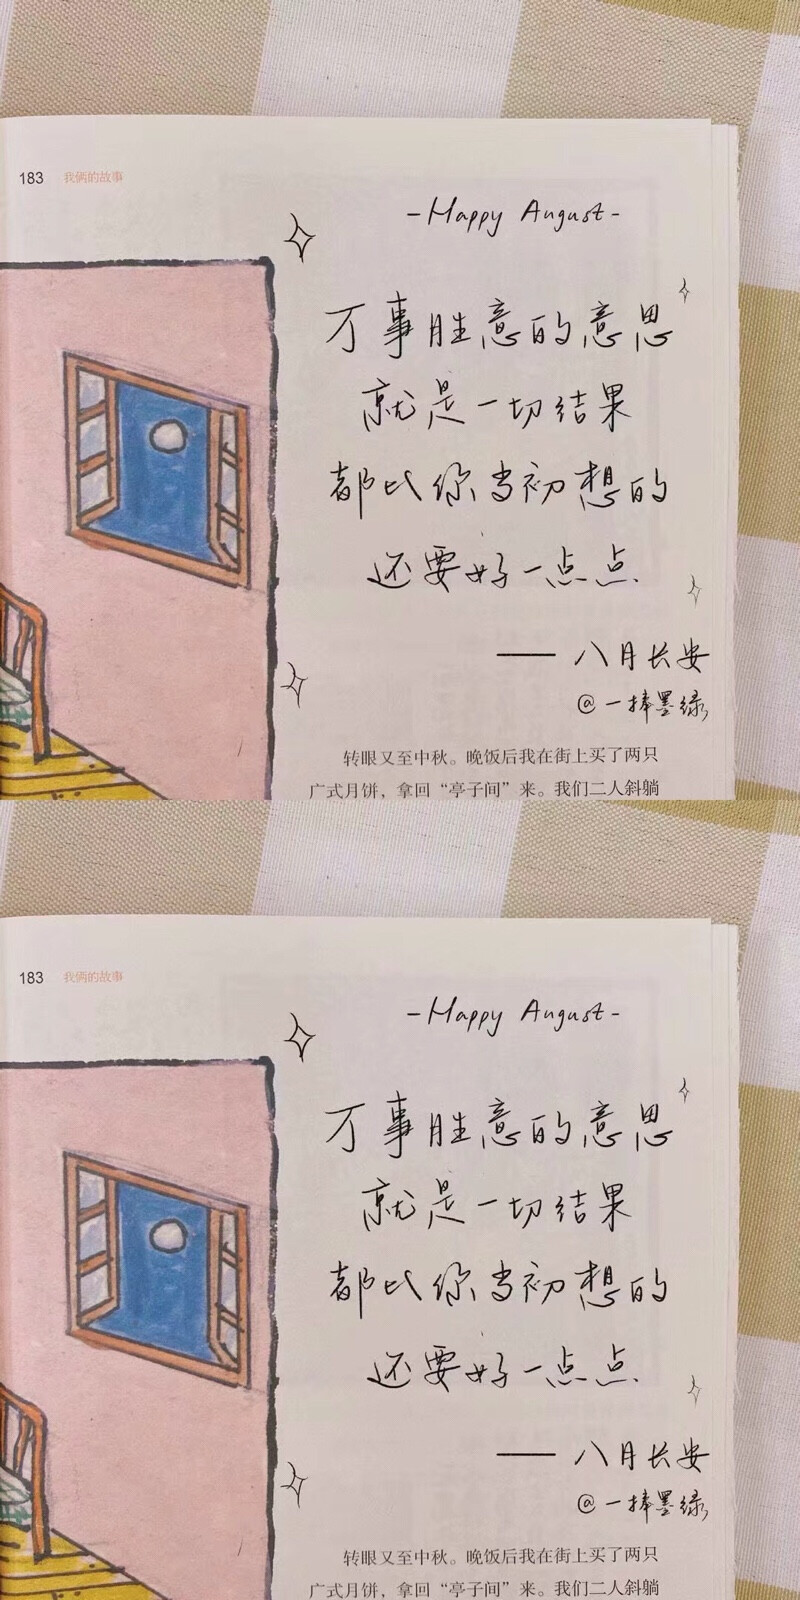 183 我俩的故事
-Happy August-
万事胜意的意思
就是一切结果
都比你当初想的
还要好一点点.
—— 八月长安
@一捧墨绿
转眼又至中秋。晚饭后我在街上买了两只
广式月饼，拿回“亭子间”来。我们二人斜躺
183 我俩的故事
-Happy August-
万事胜意的意思
就是一切结果
都比你当初想的
还要好一点点.
—— 八月长安
@一捧墨绿
转眼又至中秋。晚饭后我在街上买了两只
广式月饼，拿回“亭子间”来。我们二人斜躺